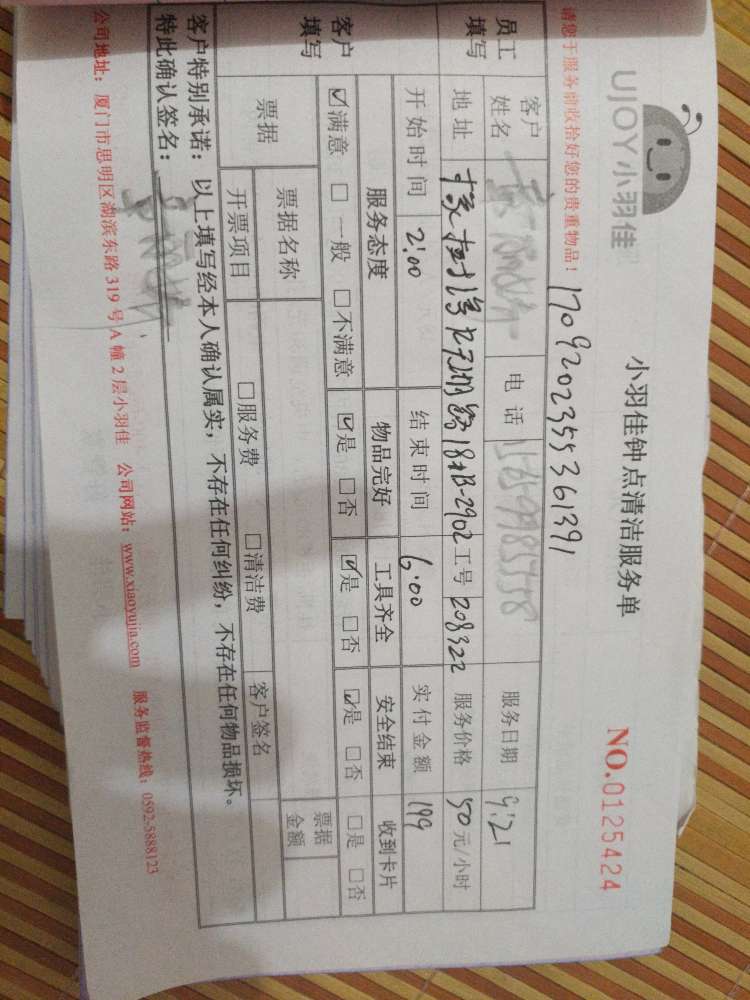 UJOY小羽佳
小羽佳钟点清洁服务单
NO.0125424
请您于服务前收拾好您的贵重物品！
170920235536 1391
员工填写
客户姓名
电话
服务日期 9.21
地址 18#B-2902
工号 208322
服务价格 50元/小时
开始时间 2:00
结束时间 6:00
实付金额 199
客户填写
服务态度 物品完好 工具齐全 安全结束 收到卡片
☑满意 □一般 □不满意 ☑是 □否 ☑是 □否 ☑是 □否 □是 □否
票据
票据名称
票据金额
开票项目 □服务费 □清洁费 客户签名
客户特别承诺：以上填写经本人确认属实，不存在任何纠纷，不存在任何物品损坏。
特此确认签名：
公司地址：厦门市思明区湖滨东路319号A幢2层小羽佳 公司网站：www.xiaoyujia.com 服务监督热线：0592-5888123